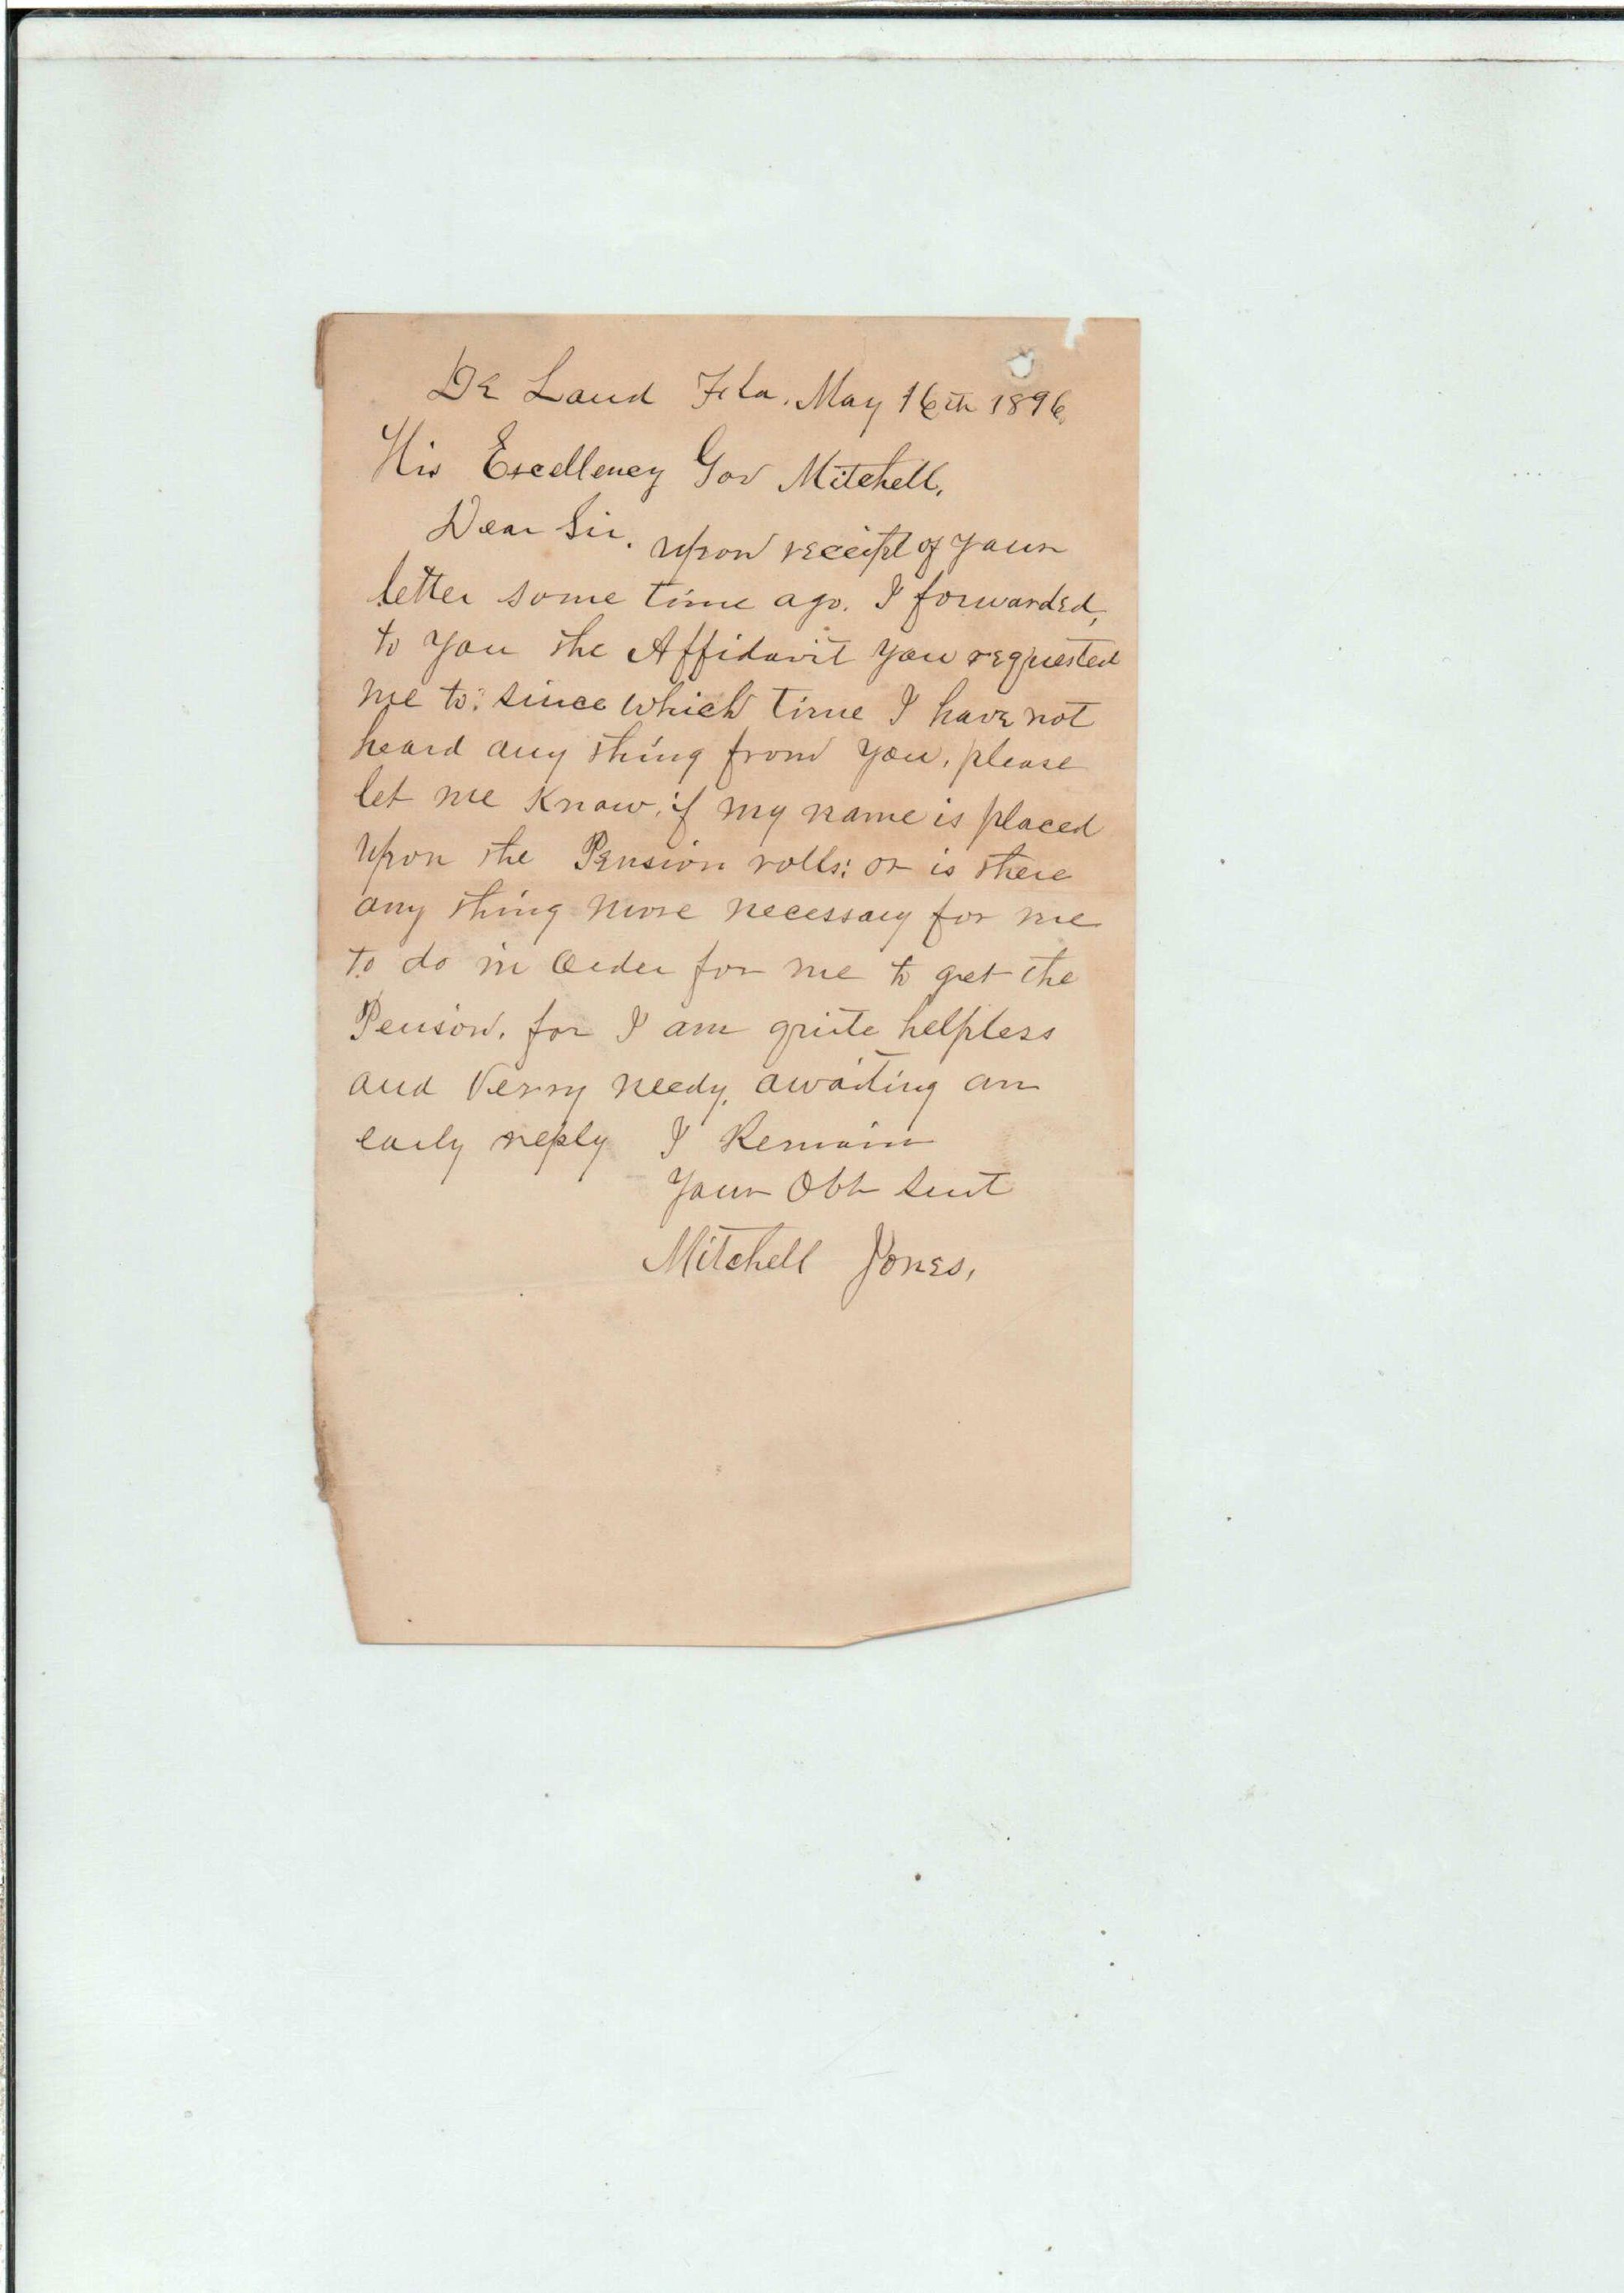 De Land Fla. May 16th 1896.
His Excellency Gov Mitchell.
Dear Sir. upon receipt of your
letter some time ago. I forwarded,
to you the Affidavit you requested
me to: since which time I have not
heard any thing from you, please
let me Know, if my name is placed
upon the Pension rolls: or is there
any thing more necessary for me
to do in Order for me to get the
Pension. for I am quite helpless
and Verry needy, awaiting an
early reply I Remain
Your Obt Sevt
Mitchell Jones.